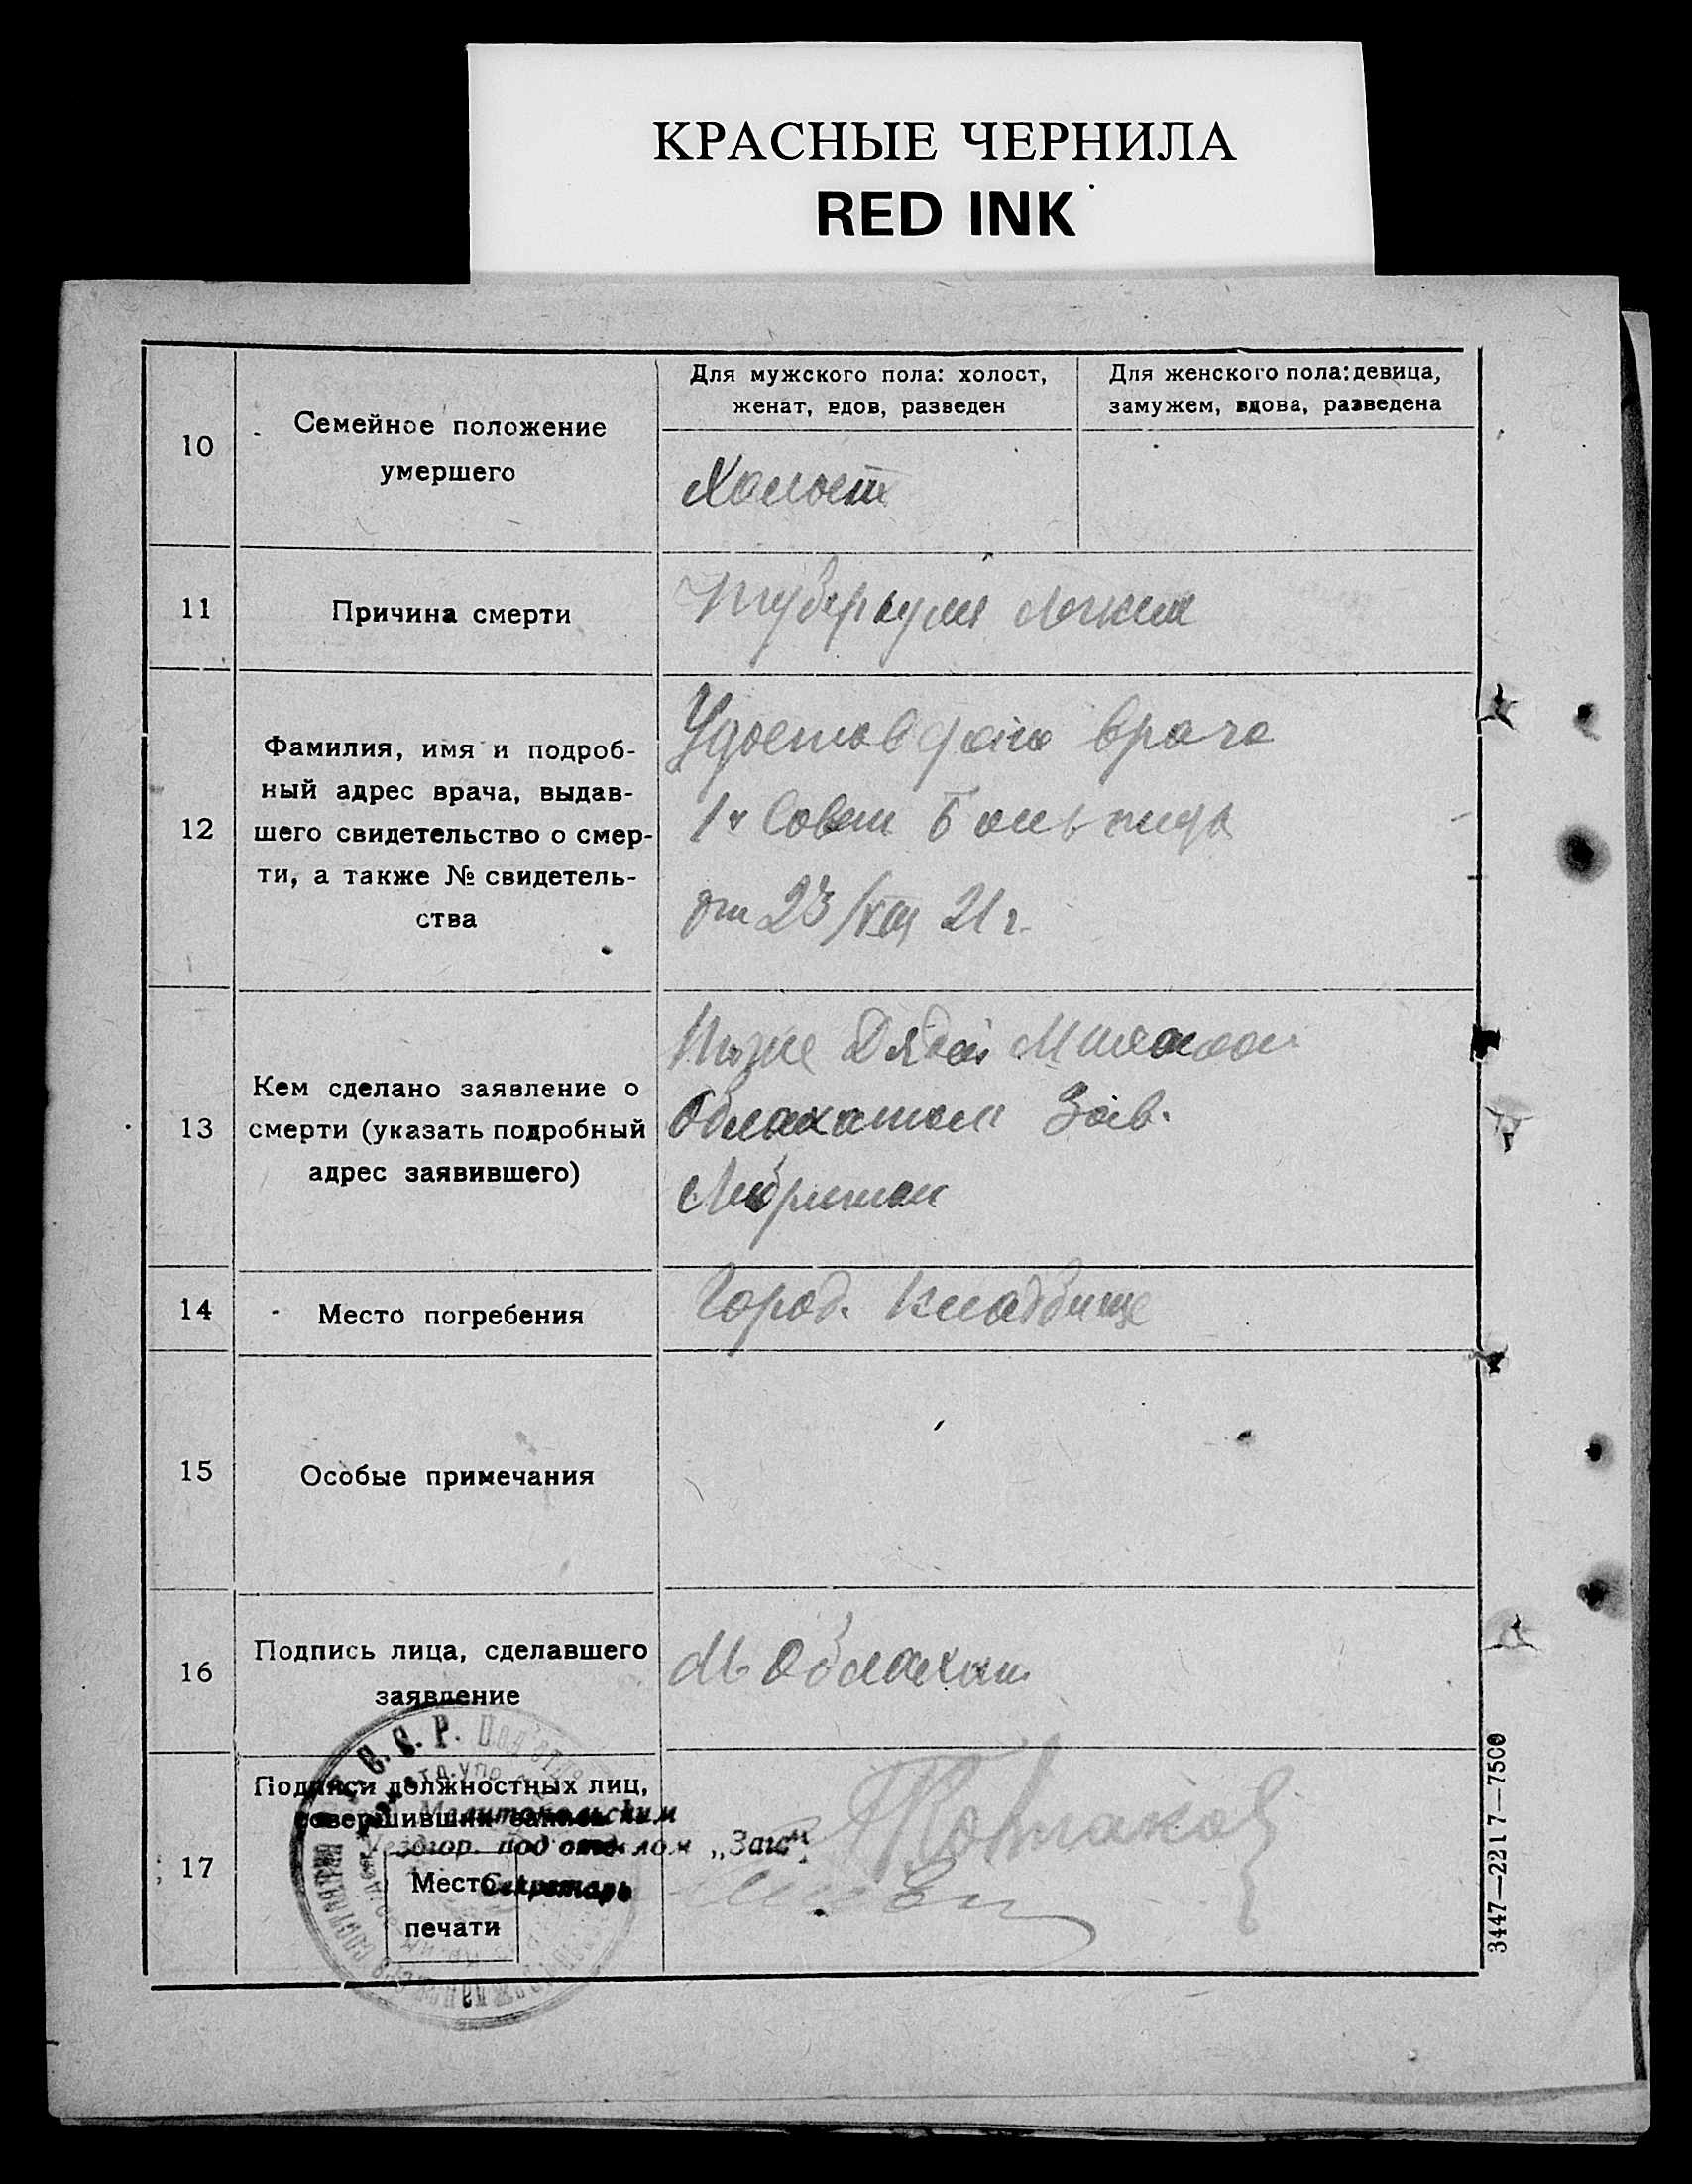 КРАСНЫЕ ЧЕРНИЛА
RED INK
10
Семейное положение
умершего
Для мужского пола: холост,
женат, вдов, разведен
Для женского пола: девица,
замужем, вдова, разведена
Холост
11
Причина смерти
Туберкулез легких
12
Фамилия, имя и подроб-
ный адрес врача, выдав-
шего свидетельство о смер-
ти, а также № свидетель-
ства
врача
1й Совет Больницы
от 23/VIII 21 г.
13
Кем сделано заявление о
смерти (указать подробный
адрес заявившего)
Дядей
Зав.
14
Место погребения
Город. Кладбище
15
Особые примечания
16
Подпись лица, сделавшего
заявление
М
С. С. Р.
17
Подписи должностных лиц,
совершивших запись
Мелитопольским
под отделом „Загс"
Место
печати
Секретарь
3447—2217—7500